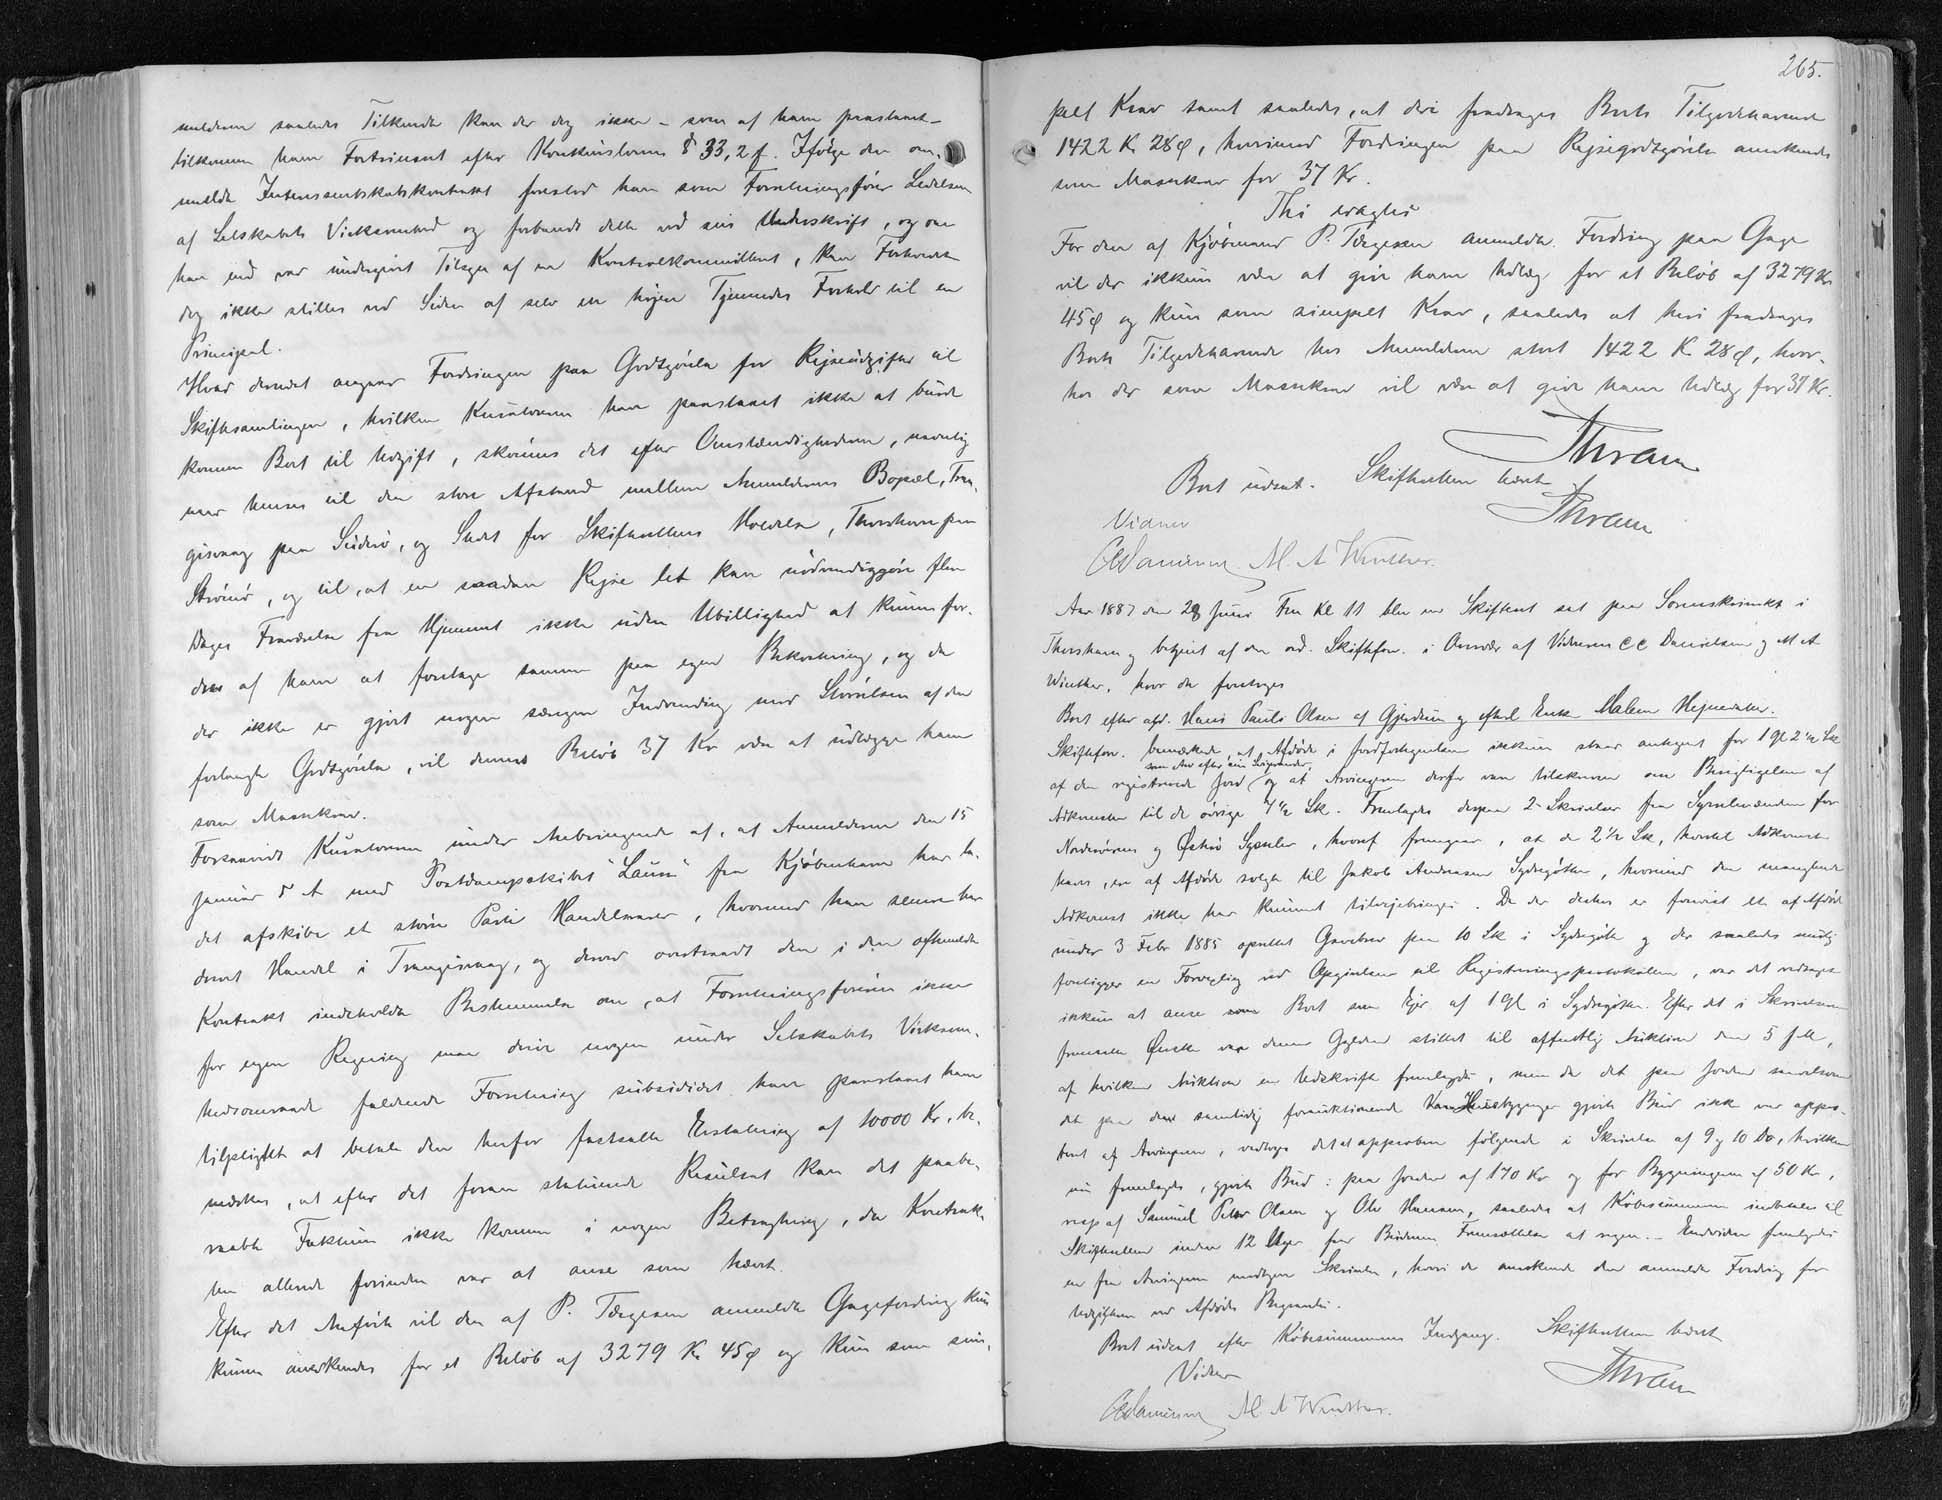 meldern saaledes Tilkendte kan der dog ikke - som af ham paastaaet -
tilkomme ham Fortrinsret efter Konkurslovens § 33, 2 f. Ifølge den om-
meldte Interessentskabskontrakt forestod han som Forretningsfører Ledelsen
af Selskabets Virksomhed og forbandt dette ved sin Underskrift, og om
han end var undergivet Tilsyn af en Kontrolkommittent, kan Forholdet
dog ikke stilles ved Siden af selv en højere Tjenendes Forhold til en
Principal.
Hvad dernæst angaar Fordringen paa Godtgørelse for Rejseudgifter til
Skiftesamlingen, hvilken Kuratoren har paastaaet ikke at burde
komme Boet til Udgift, skønnes det efter Omstændighederne, navnlig
naar henses til den store Afstand mellem Anmelderens Bopæl, Tran-
gisvaag paa Suderø, og Sædet for Skifterettens Holdelse, Thorshavn paa
Strømø, og til, at en saadan Rejse let kan nødvendiggøre flere
Dages Fraværelse fra Hjemmet ikke uden Ubillighed at kunne for-
dres af ham at foretage samme paa egen Bekostning, og da
der ikke er gjort nogen særegen Indvending mod Størrelsen af den
forlangte Godtgørelse, vil dennes Beløb 37 Kr være at udlægge ham
som Massekrav.
Forsaavidt Kuratoren under Anbringende af, at Anmelderen den 15
Januar d A med Postdampskibet "Laura" fra Kjøbenhavn har la-
det afskibe et større Parti Handelsvarer, hvormed han senere har
drevet Handel i Trangisvaag, og derved overtraadt den i den ofmeldte
Kontrakt indeholdte Bestemmelse om, at Forretningsføreren ikke
for egen Regning maa drive nogen under Selskabets Virksom-
hedsomraade faldende Forretning subsidiært har paastaaet ham
tilpligtet at betale den herfor fastsatte Erstatning af 10000 Kr, be-
mærkes, at efter det foran statuerede Resultat kan det paabe-
raabte Faktum ikke komme i nogen Betragtning, da Kontrakt-
en allerede forinden var at anse som hævet.
Efter det Anførte vil den af P. Tørgesen anmeldte Gagefordring kun
kunne anerkendes for et Beløb af 3279 Kr 45 ø og kun som sim-
265.
pelt Krav samt saaledes, at deri fradrages Boets Tilgodehavende
1422 Kr 28 ø, hvorimod Fordringen paa Rejsegodtgørelse anerkendes
som Massekrav for 37 Kr.
Thi eragtes
For den af Kjøbmand P. Tørgesen anmeldte Fordring paa Gage
vil der ikkun være at give ham Udlæg for et Beløb af 3279 Kr
45 ø og kun som simpelt Krav, saaledes at heri fradrages
Boets Tilgodehavende hos Anmelderen stort 1422 Kr 28 ø, hvor-
hos der som Massekrav vil være at give ham Udlæg for 37 Kr.
Thram
Boet udsat. Skifteretten hævet
Thram
Vidner
CCDanielsen M. A Winther.
Aar 1887 den 28 Juni Fm Kl 11 blev en Skifteret sat paa Sorenskriverkt i
Thorshavn og betjent af den ord. Skifteforv. i Overvær af Vidnerne C C Danielsen og M A
Winther, hvor da foretoges
Boet efter afd. Hans Pauli Olsen af Gjerdum og efterl Enke Malene Hejnesdatter.
Skifteforv. bemærkede, at Afdøde i Jordfortegnelsen ikkun staar antegnet for 1 Gl 2 1/2 Sk
som Arv efter sin Svigerfader,
af den registrerede Jord og at Arvingerne derfor vare tilskrevne om Berigtigelsen af
Adkomsten til de øvrige 4 1/2 Sk. Fremlagdes desuden 2 Skrivelser fra Sysselmændene for
Norderøerne og Østerø Sysseler, hvoraf fremgaar, at de 2 1/2 Sk, hvortil Adkomst
haves, ere af Afdøde solgte til Jakob Andreasen Sydregøthe, hvorimod den manglende
Adkomst ikke har kunnet tilvejebringes. Da der derhos er forevist et af Afdøde
under 3 Febr 1885 oprettet Gavebrev paa 10 Sk i Sydregøte og der saaledes mulig
foreligger en Forvexling ved Opgivelsen til Registreringsprotokollen, var det vedtaget
ikkun at anse Boet som Ejer af 1 Gl i Sydregøthe. Efter det i Skrivelsen
fremsatte Ønske var denne Gylden stillet til offentlig Auktion den 5 f M,
af hvilken Auktion en Udskrift fremlagdes, men da det paa Jorden saavelsom
det paa den samtidig forauktionerede Husbygninger gjorte Bud ikke var appro-
beret af Arvingerne, vedtoges det at approbere følgende i Skrivelse af 9 og 10 Ds, hvilken
nu fremlagdes, gjorte Bud: paa Jorden af 170 Kr og for Bygningerne af 50 Kr,
resp af Samuel Peter Olsen og Ole Hansen, saaledes at Købesummen indbetales til
Skifteretten inden 12 Uger fra Budenes Fremsættelse at regne. - Endvidere fremlagdes
en fra Arvingerne modtagen Skrivelse, hvori de anerkende den anmeldte Fordring for
Udgifterne ved Afdødes Begravelse.
Boet udsat efter Købesummens Indgang. Skifteretten hævet
Thram
Vidner
CCDanielsen M. A Winther.